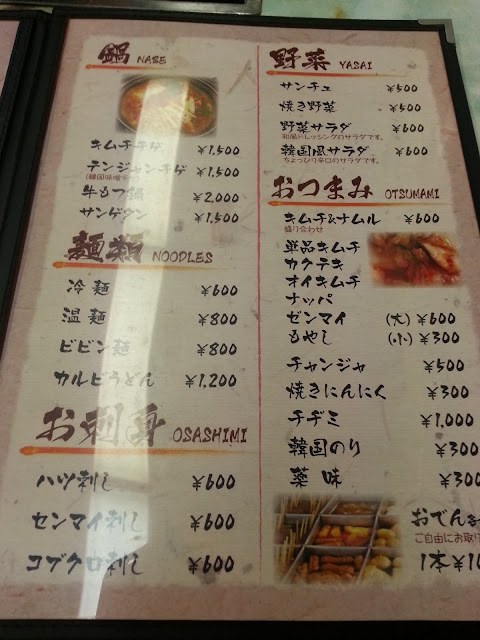 鍋 NASE
キムチチゲ ¥1,500
テンジャンチゲ ¥1,500
(韓国味噌チゲ)
牛もつ鍋 ¥2,000
サンゲタン ¥1,500
麺類 NOODLES
冷麺 ¥600
温麺 ¥800
ビビン麺 ¥800
カルビうどん ¥1,200
お刺身 OSASHIMI
ハツ刺し ¥600
センマイ刺し ¥600
コブクロ刺し ¥600
野菜 YASAI
サンチュ ¥500
焼き野菜 ¥500
野菜サラダ ¥500
和風ドレッシングのサラダです。
韓国風サラダ ¥500
ちょっぴり辛口のサラダです。
おつまみ OTSUMAMI
キムチ&ナムル ¥600
盛り合わせ
単品キムチ
カクテキ
オイキムチ
ナッパ
ゼンマイ (大) ¥600
もやし (小) ¥300
チャンジャ ¥500
焼きにんにく ¥300
チヂミ ¥1,000
韓国のり ¥300
薬味 ¥300
おでん
ご自由にお取り
1本¥10